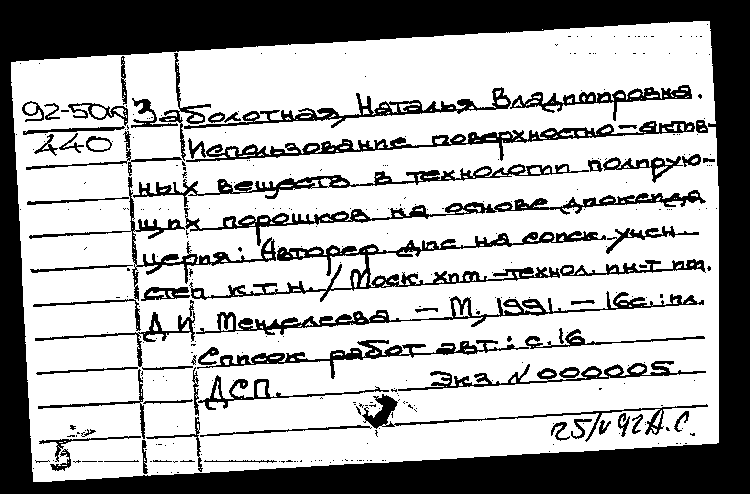 92-50к Заболотная, Наталья Владимировна.
440 Использование поверхностно-актив-
ных веществ в технологии полирую-
щих порошков на основе диоксида
церия: Автореф. дис. на соиск. учен.
степ. к.т.н. / Моск. хим.-технол. ин-т им.
Д.И. Менделеева. - М., 1991. - 16с.: ил.
Список работ авт.: с. 16.
ДСП. Экз. N 000005.
25/V 92 А.С.